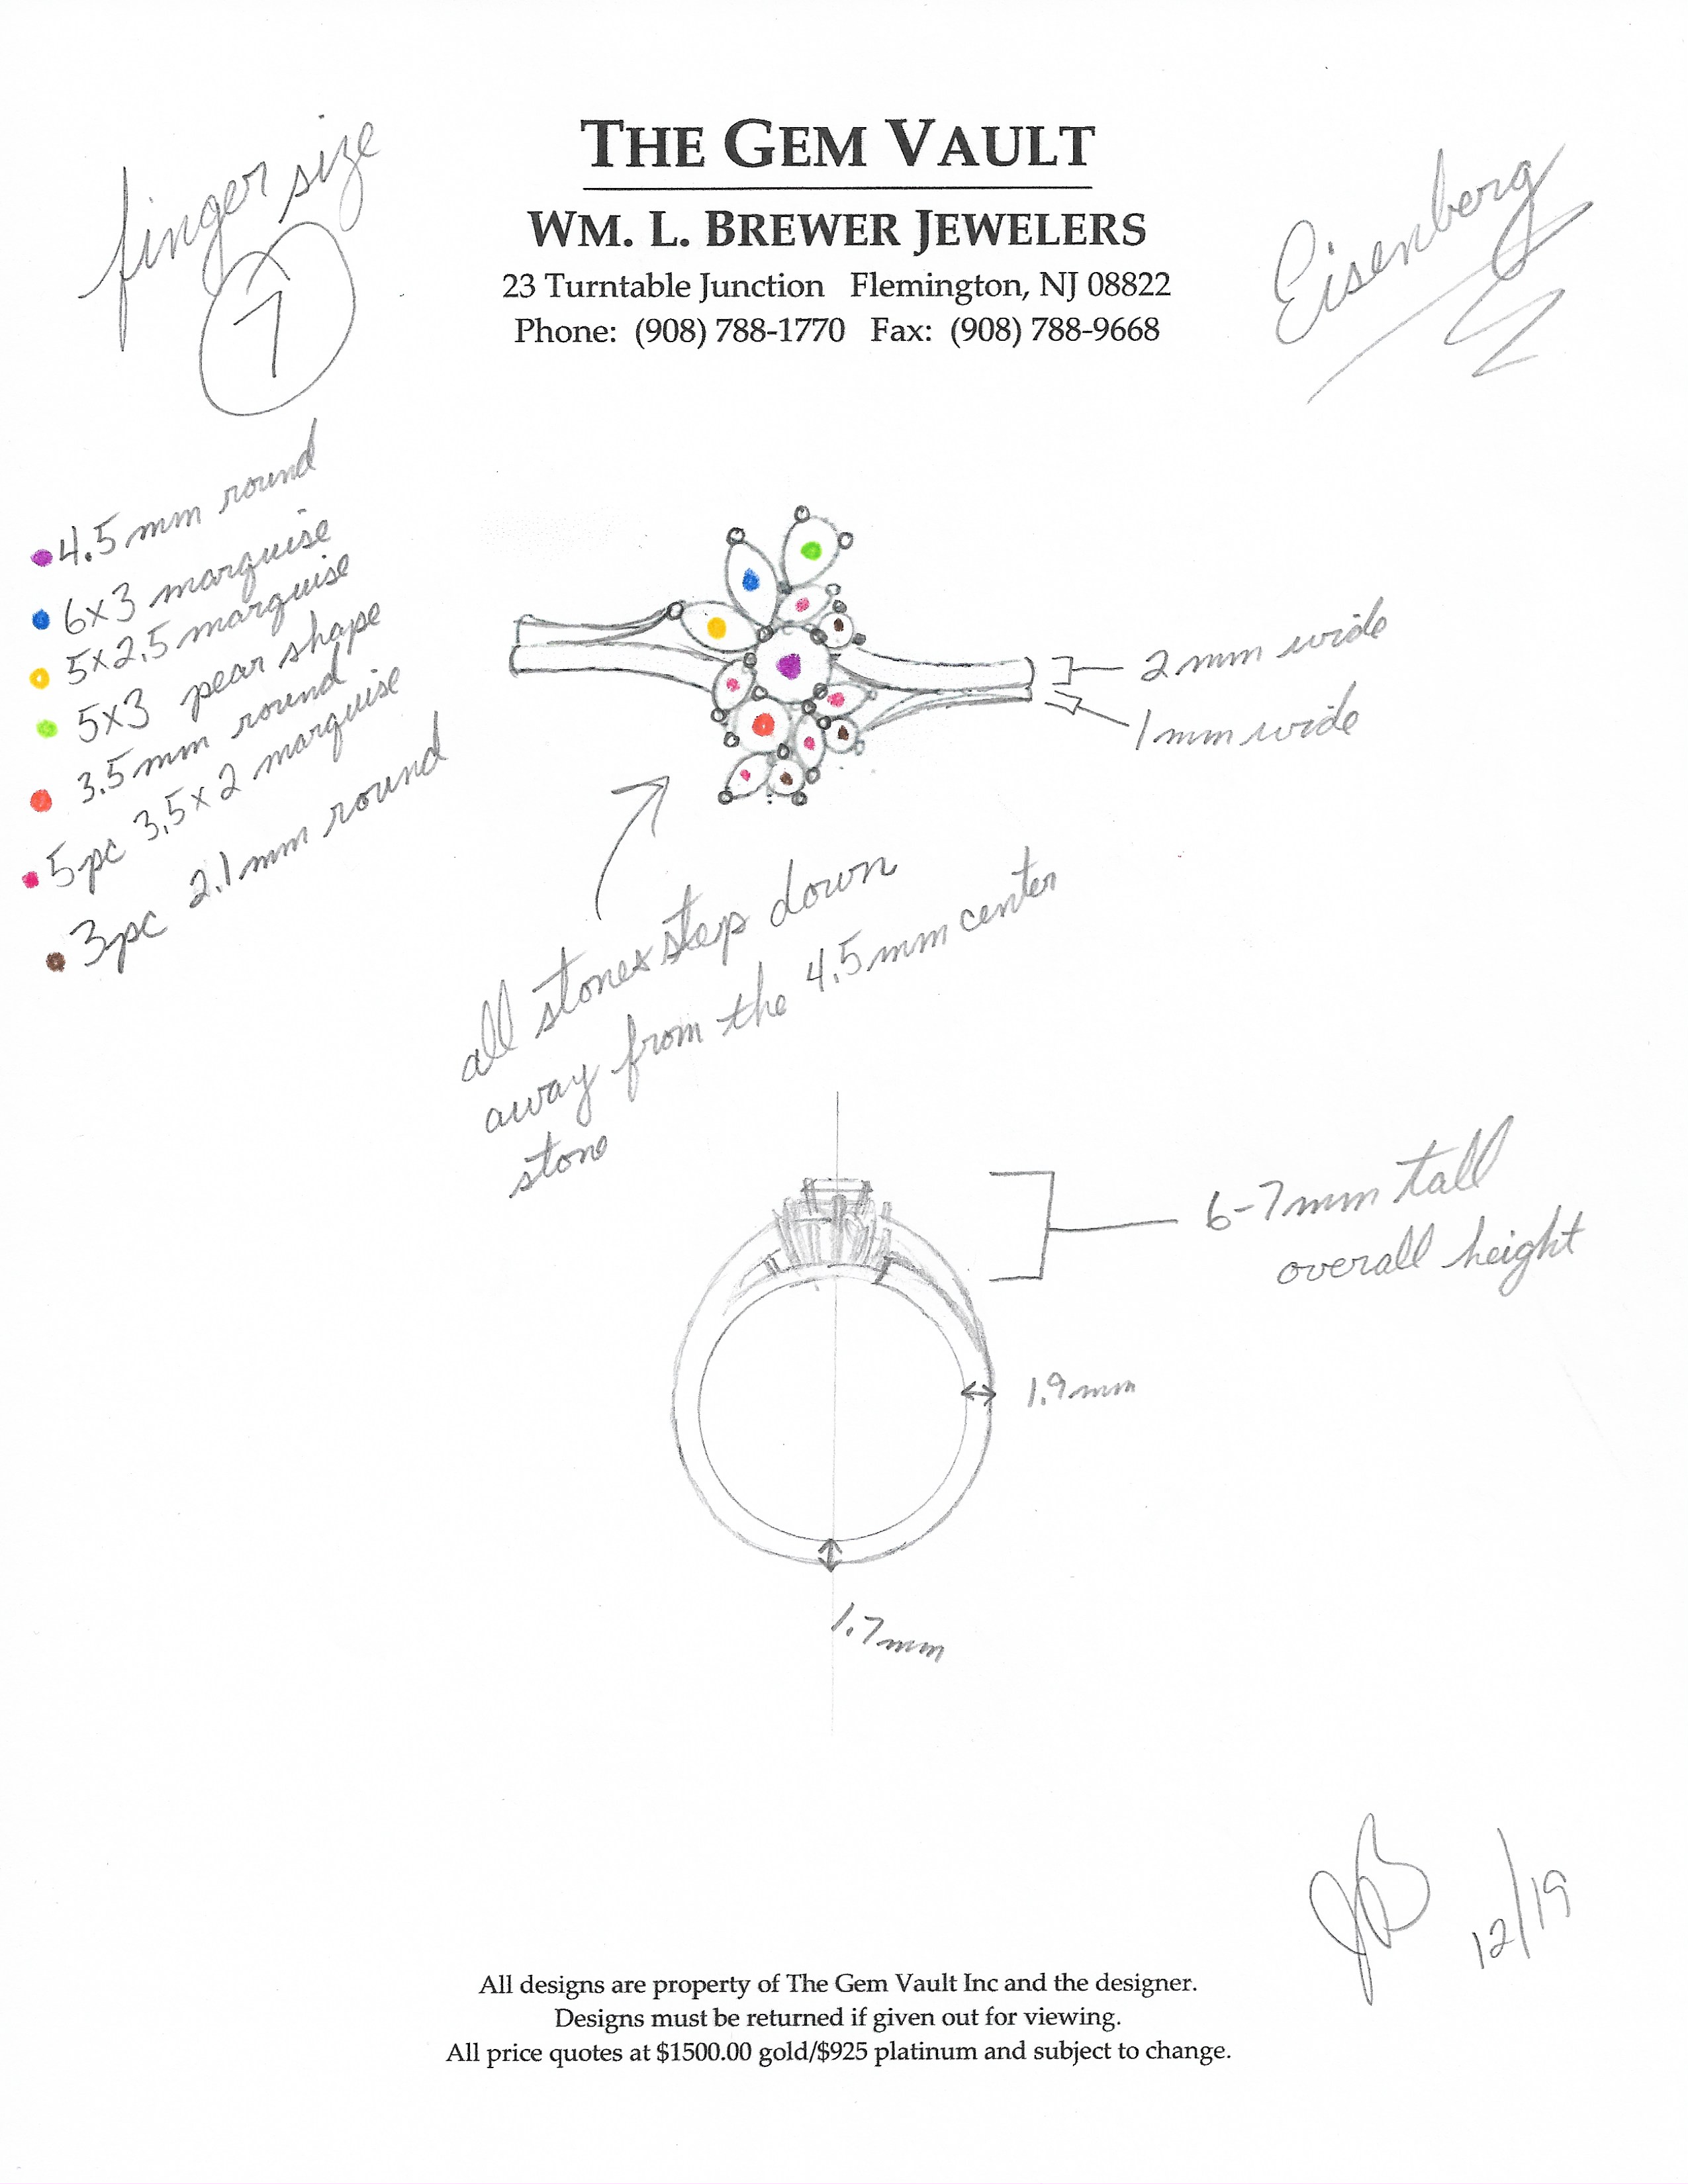 THE GEM VAULT
WM. L. BREWER JEWELERS
23 Turntable Junction Flemington, NJ 08822
Phone: (908) 788-1770 Fax: (908) 788-9668
finger size
7
Eisenberg
4.5 mm round
6x3 marquise
5x2.5 marquise
5x3 pear shape
3.5mm round
5pc 3.5x2 marquise
3pc 2.1mm round
2mm wide
1mm wide
all stones step down
away from the 4.5mm center
stone
6-7mm tall
overall height
1.9mm
1.7mm
JB 12/19
All designs are property of The Gem Vault Inc and the designer.
Designs must be returned if given out for viewing.
All price quotes at $1500.00 gold/$925 platinum and subject to change.